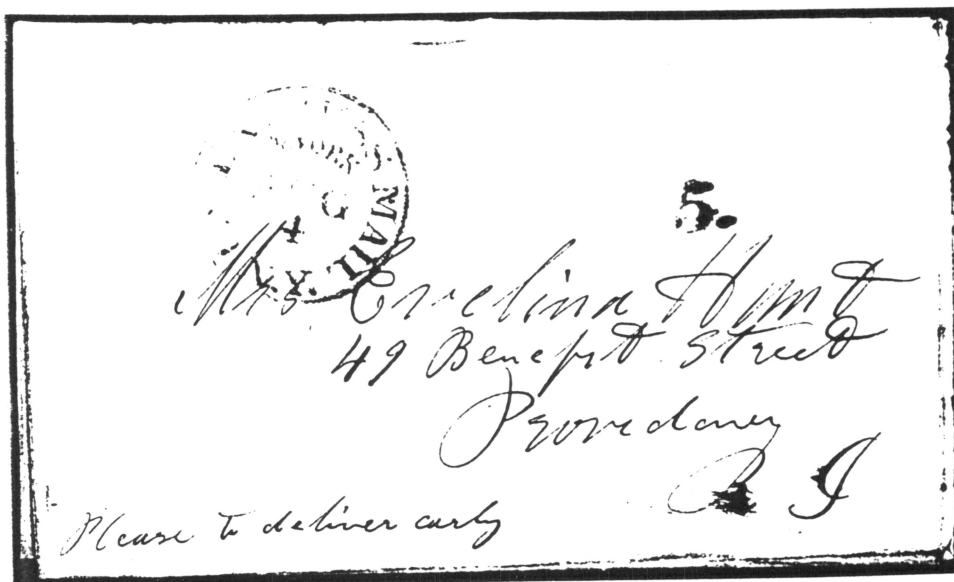 MAIL
5.
Mrs Evelina Hunt
49 Benefit Street
Providence
R I
Please to deliver early